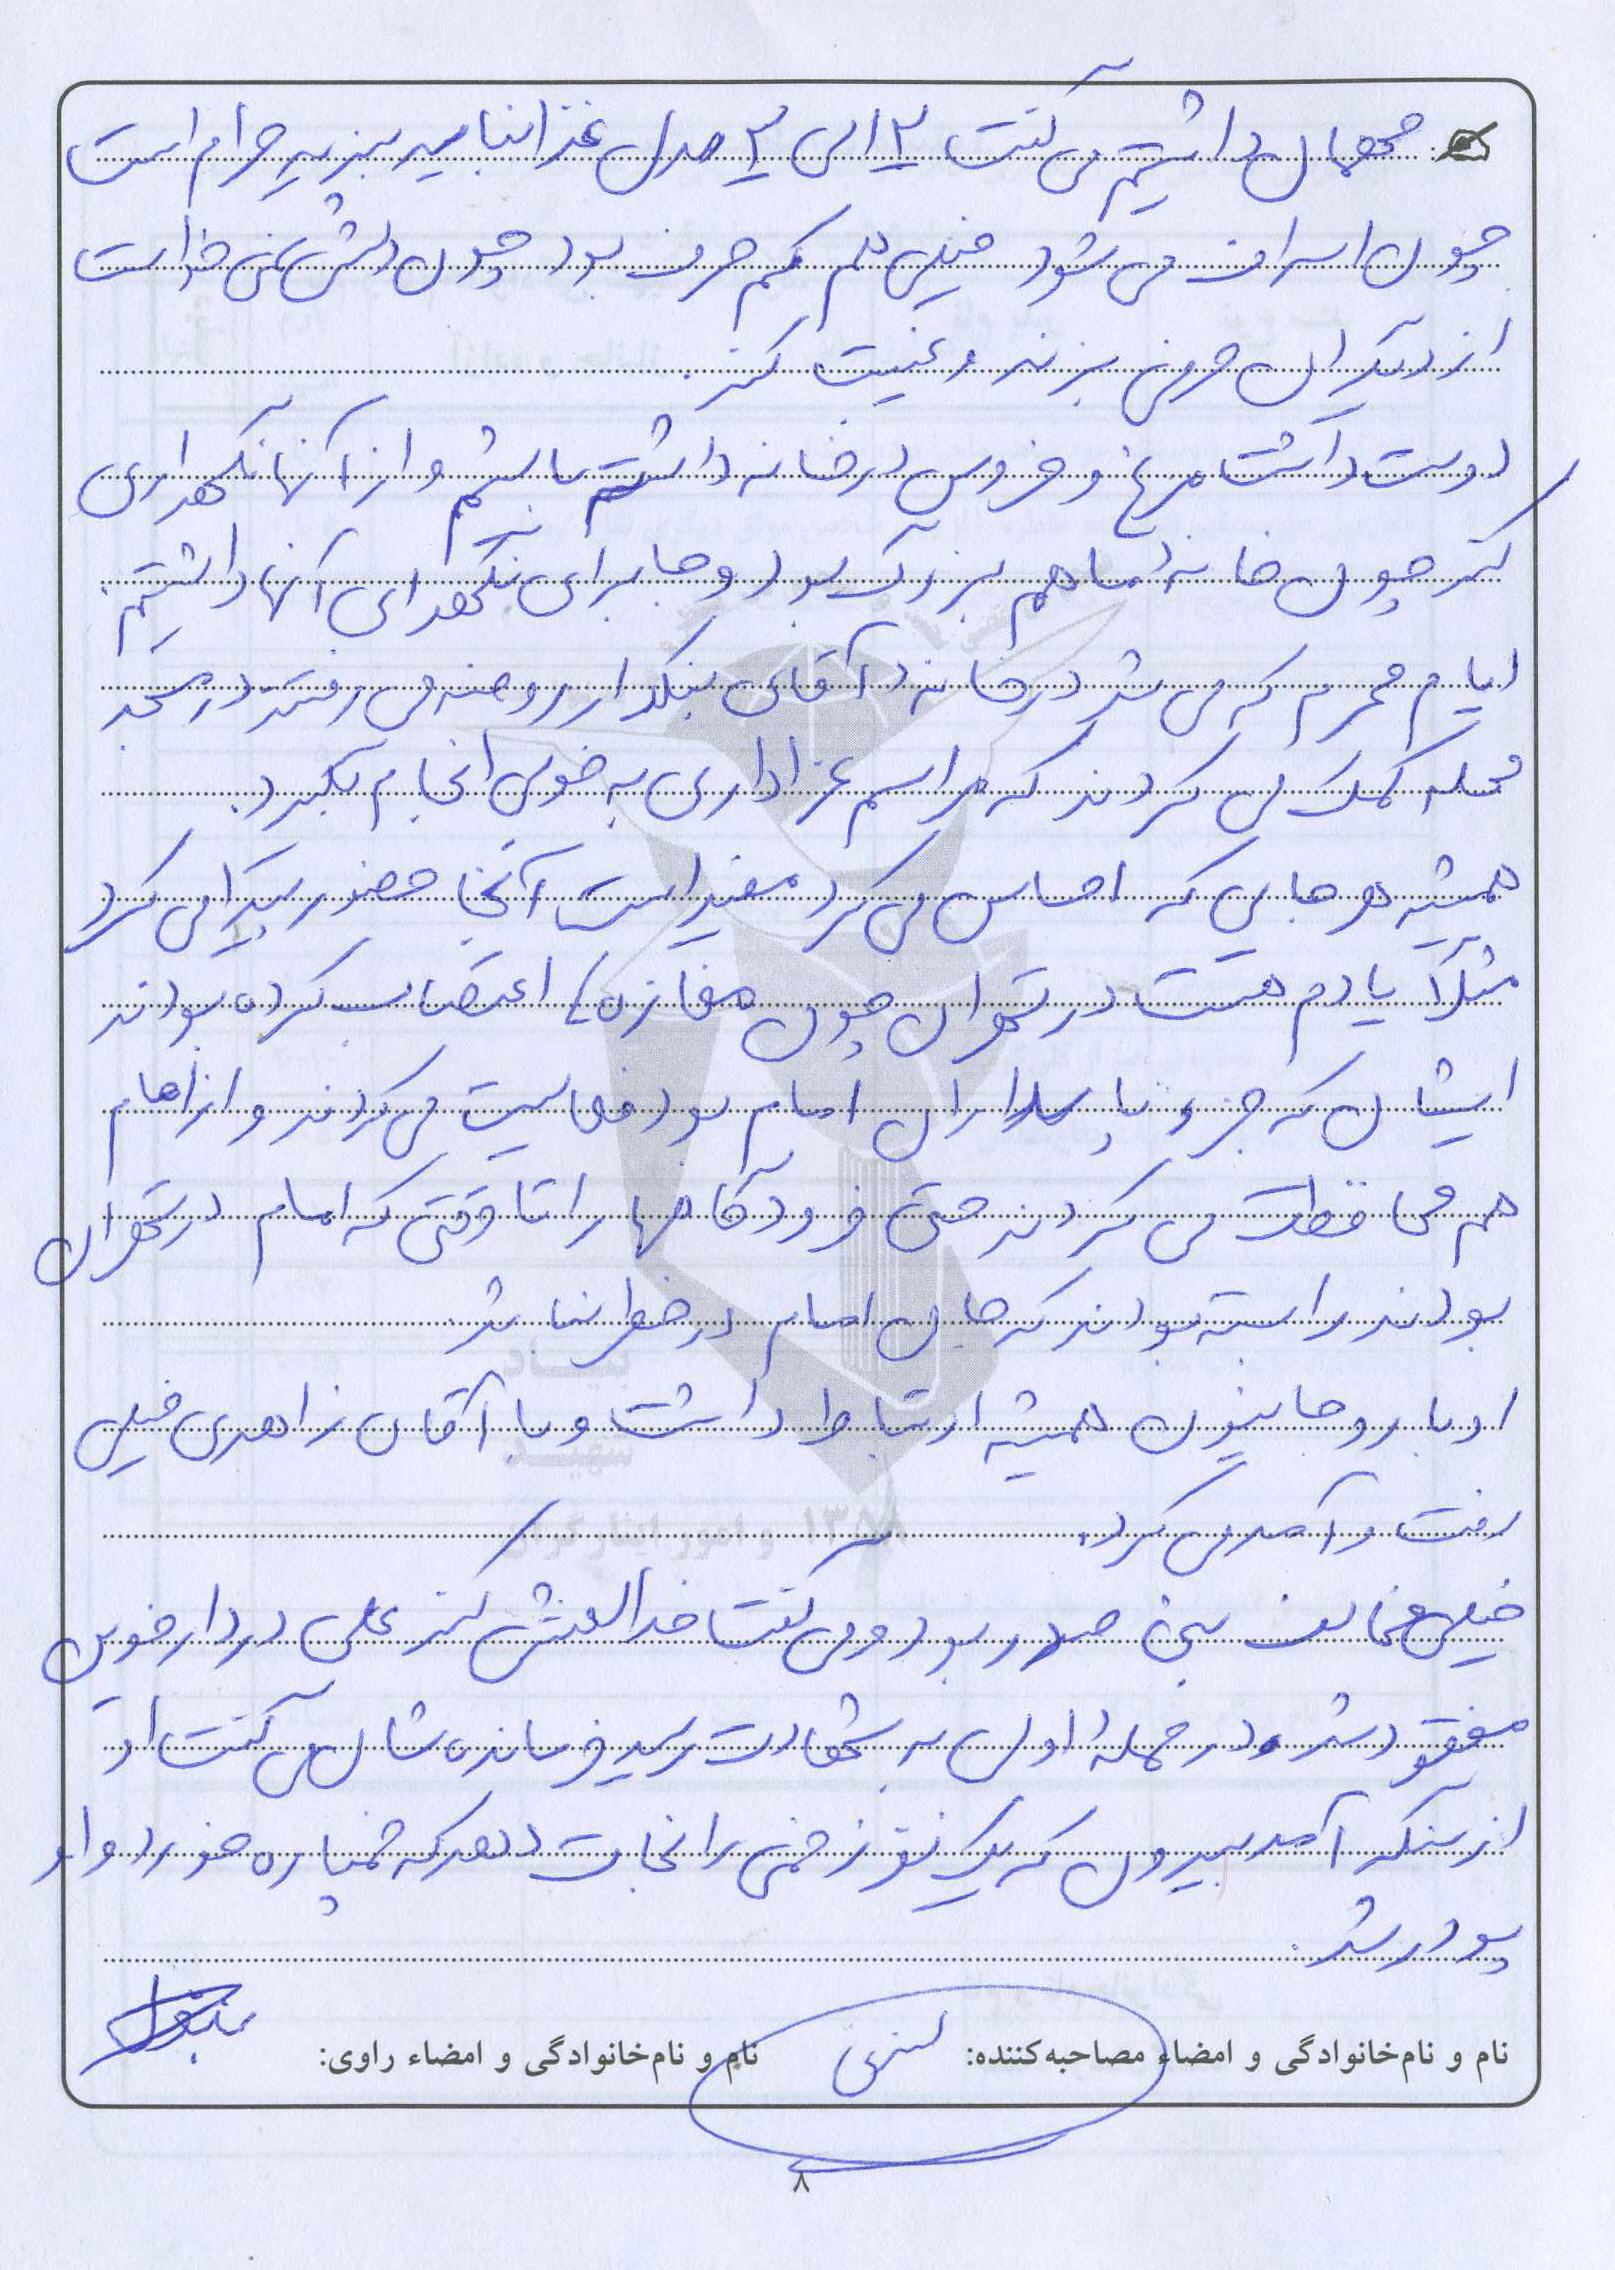 مهمان داشتیم می گفت ۲ الی ۳ مدل غذا نباید بپزید حرام است
چون اسراف می شود خیلی هم کم حرف بود چون دلش نمی خواست
از دیگران حرفی بزند و غیبت کند.
دوست داشت مرغ و خروس در خانه داشته باشیم و از آنها نگهداری
کند چون خانه ما هم بزرگ بود و جا برای نگهداری آنها داشتیم.
ایام محرم که می شد در خانه آقای بنکدار روضه می رفتند در مسجد
محله کمک می کردند که مراسم عزاداری به خوبی انجام بگیرد.
همیشه هر جایی که احساس می کرد مفید است آنجا حضور پیدا می کرد
مثلاً یادم هست در تهران چون مغازه ها اعتصاب کرده بودند
ایشان که جزء پاسداران امام بود فعالیت می کردند و از امام
هم محافظت می کردند حتی فرودگاهها را تا وقتی که امام در تهران
بودند را بسته بودند که جان امام در خطر نباشد.
او با روحانیون همیشه ارتباط داشت و با آقای زاهدی خیلی
رفت و آمد می کرد.
خیلی مخالف بنی صدر بود و می گفت خدا لعنتش کند علی در دارخوین
مفقود شد و در حمله اول به شهادت رسید فرمانده شان می گفت او
از سنگر آمد بیرون که یک نفر زخمی را نجات دهد که خمپاره خورد و او
پودر شد.
نام و نام‌خانوادگی و امضاء مصاحبه‌کننده:
نام و نام‌خانوادگی و امضاء راوی:
۸